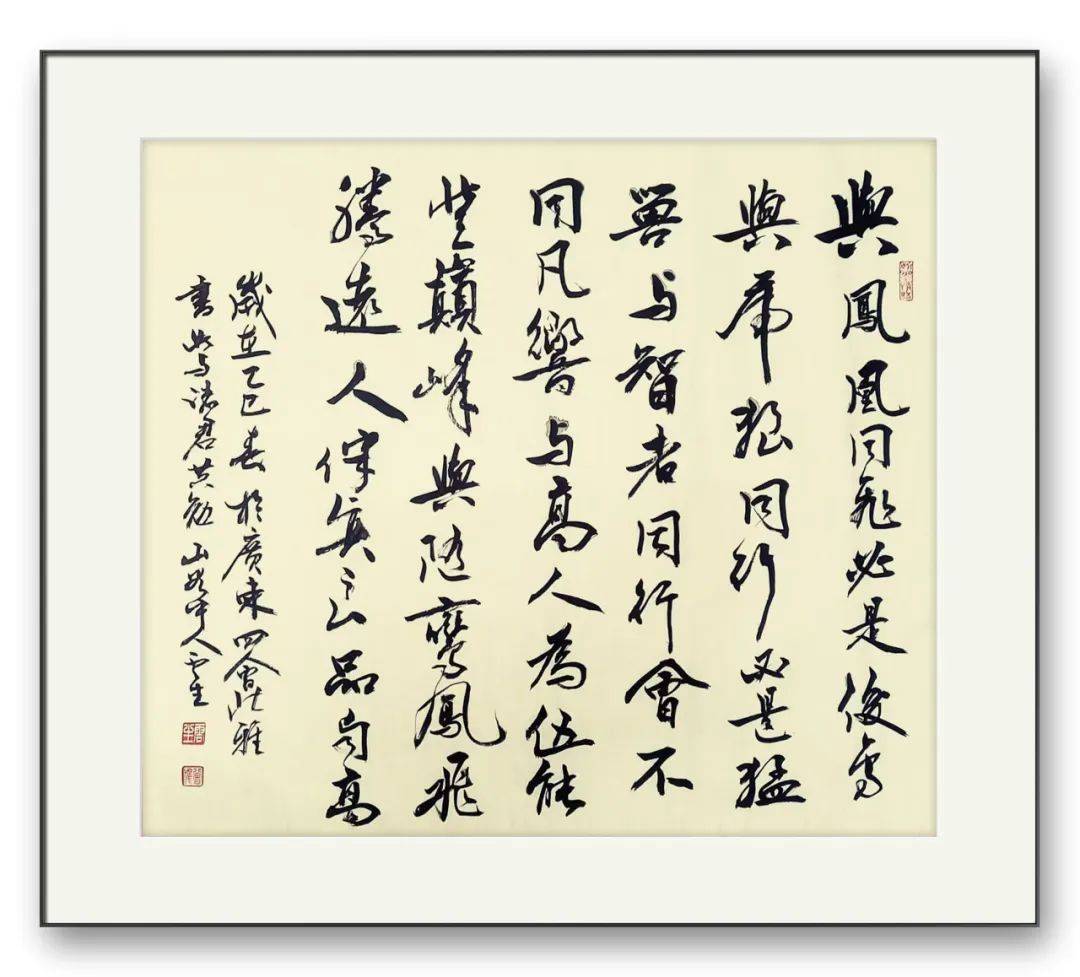 與鳳凰同飛必是俊鳥
與虎狼同行必是猛
獸与智者同行會不
同凡響与高人為伍能
登巔峰與隨鸞鳳飛
騰遠人伴賢良品尚高
歲在乙巳春於廣東四會雅
書此与諸君共勉山中人雲生